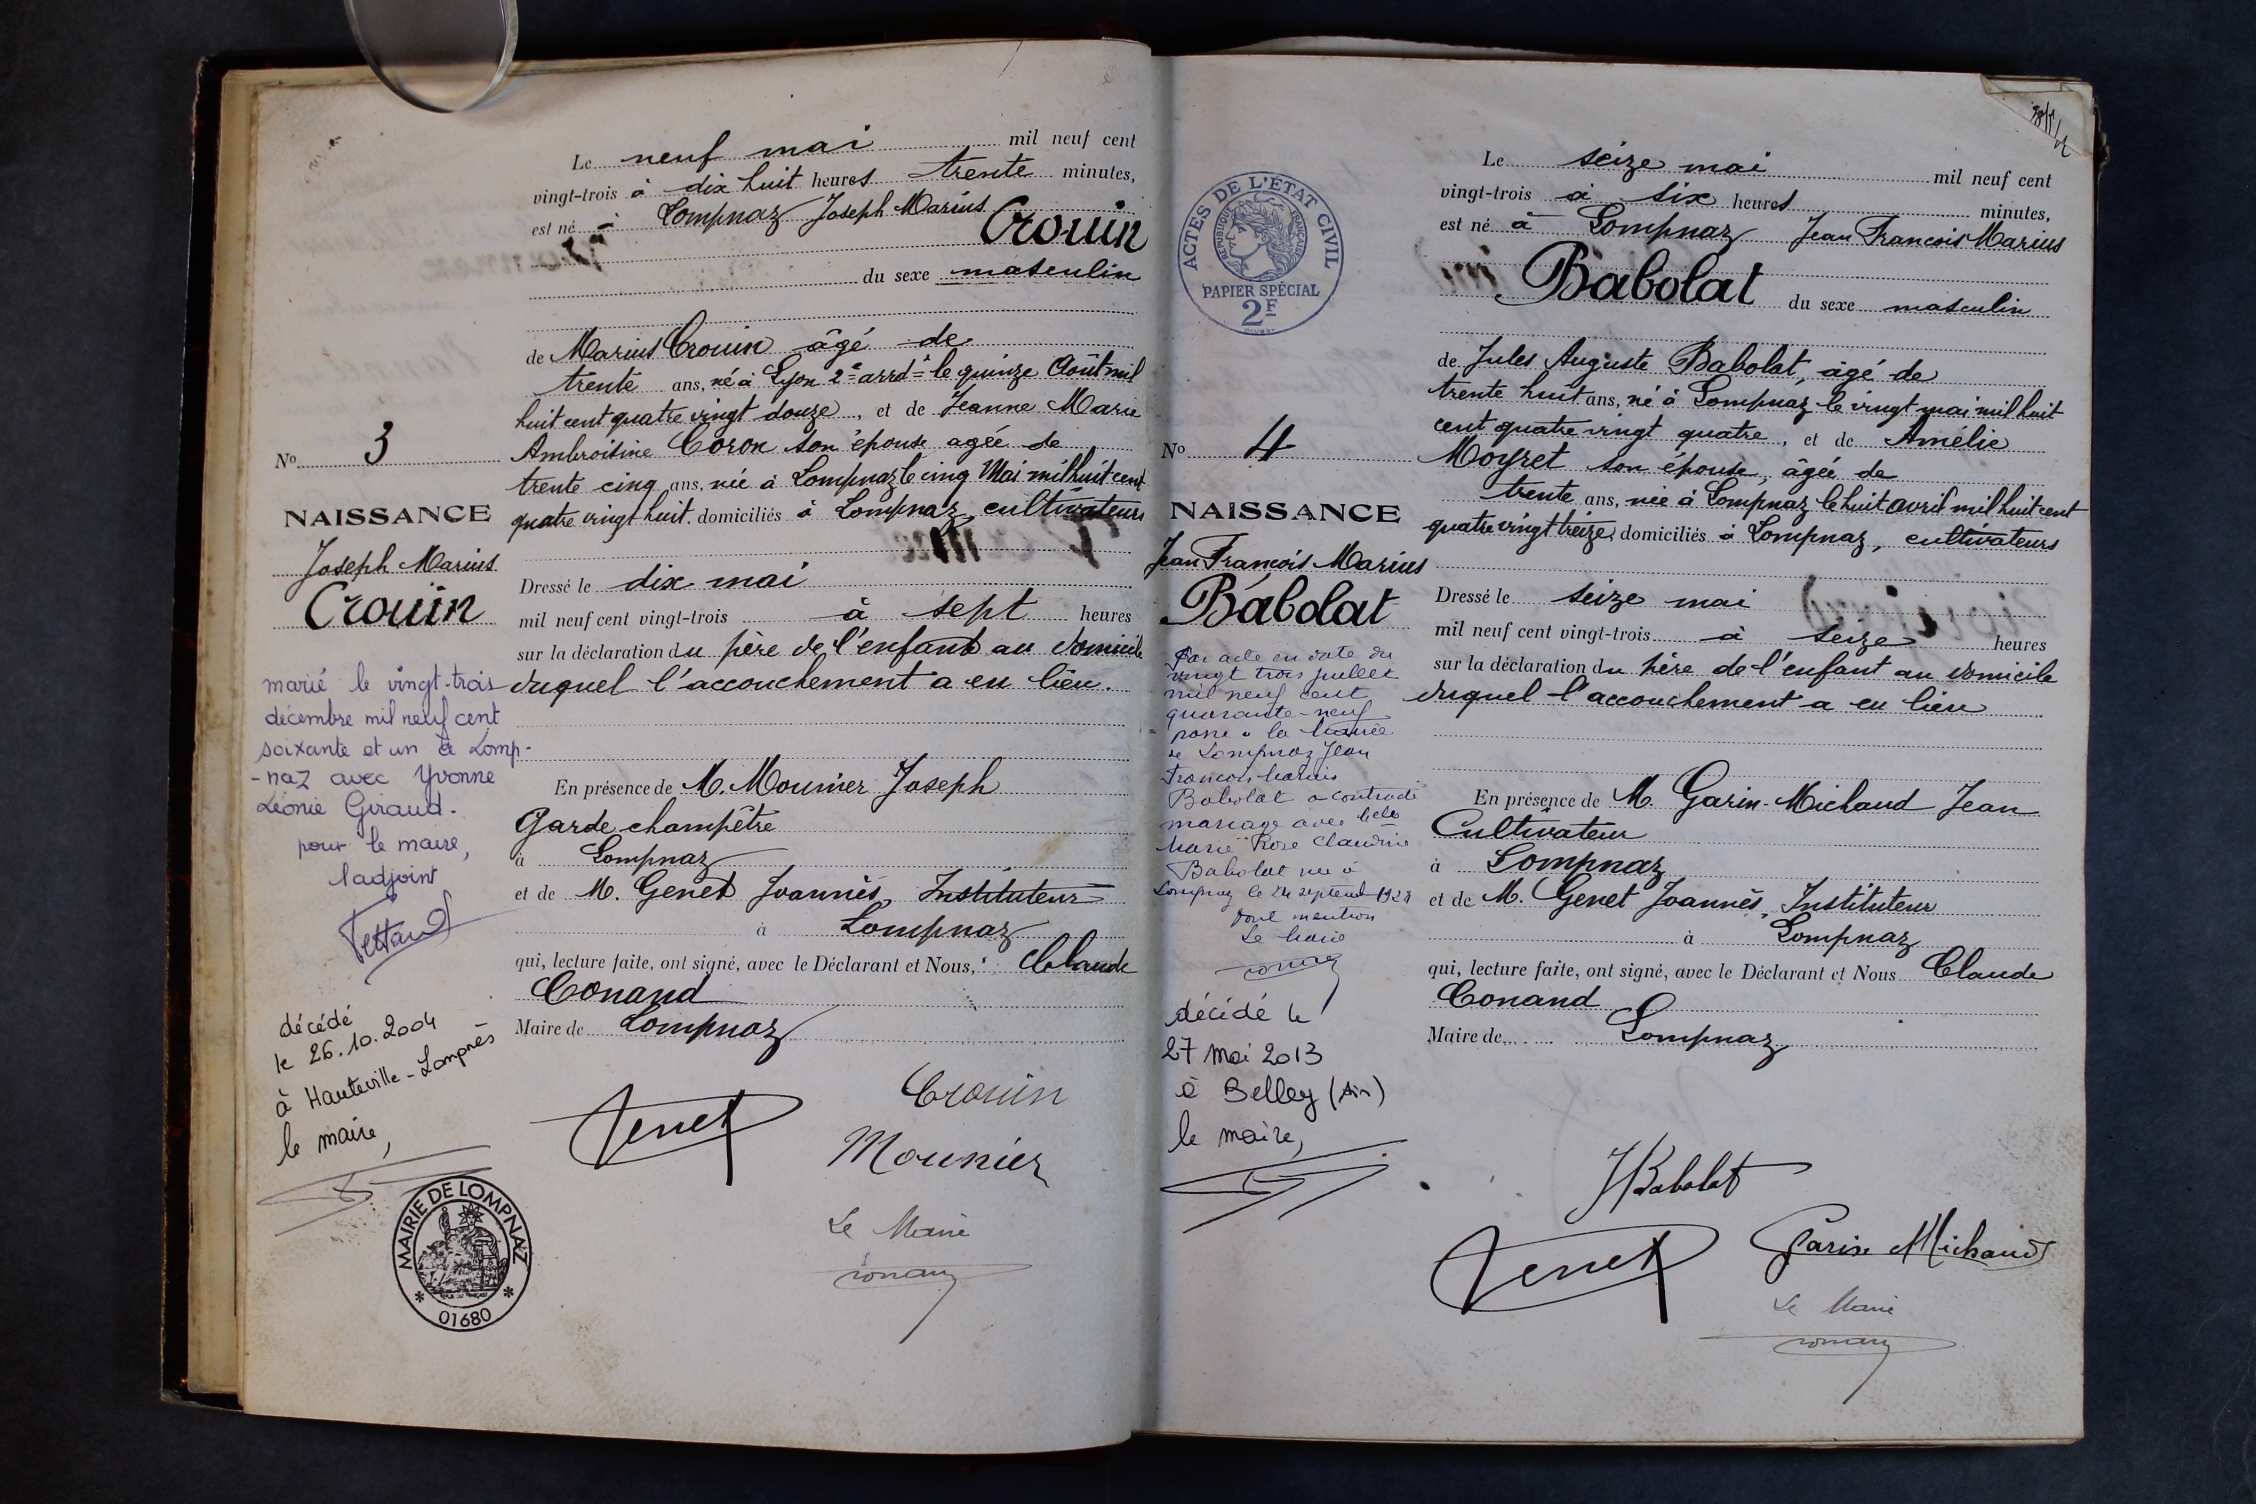 Le neuf mai mil neuf cent
vingt-trois à dix huit heures trente minutes,
est né à Lompnaz Joseph Marius
Crouin
du sexe masculin
de Marius Crouin âgé de
trente ans, né à Lyon 2e arrdt le quinze Août mil
huit cent quatre vingt douze, et de Jeanne Marie
Ambroisine Coron son épouse agée de
trente cinq ans, née à Lompnaz le cinq Mai mil huit cent
quatre vingt huit. domiciliés à Lompnaz, cultivateurs
Dressé le dix mai
mil neuf cent vingt-trois à sept heures
sur la déclaration du père de l'enfant au domicile
duquel l'accouchement a eu lieu.
En présence de M. Mounier Joseph
Garde champêtre
à Lompnaz
et de M. Genet Joannès, Instituteur
à Lompnaz
qui, lecture faite, ont signé, avec le Déclarant et Nous, Claude
Conand
Maire de Lompnaz
Genet
Crouin
Mounier
Le Maire
Conand
No 3
NAISSANCE
Joseph Marius
Crouin
marié le vingt-trois
décembre mil neuf cent
soixante et un à Lomp-
-naz avec Yvonne
Léonie Giraud.
pour le maire,
l'adjoint
décédé
le 26.10.2004
à Hauteville-Lompnès
le maire,
MAIRIE DE LOMPNAZ
* 01680 *
ACTES DE L'ÉTAT CIVIL
RÉPUBLIQUE FRANÇAISE
PAPIER SPÉCIAL
2F
No 4
NAISSANCE
Jean François Marius
Babolat
Par acte en date du
vingt trois juillet
mil neuf cent
quarante-neuf
passé à la Mairie
de Lompnaz Jean
François Marius
Babolat a contracté
mariage avec Melle
Marie Rose Claudine
Babolat née à
Lompnaz le 24 septembre
dont mention
Le Maire
Conand
décédé le
27 mai 2013
à Belley (Ain)
le maire,
Le seize mai mil neuf cent
vingt-trois à six heures minutes,
est né à Lompnaz Jean François Marius
Babolat du sexe masculin
de Jules Auguste Babolat, âgé de
trente huit ans, né à Lompnaz le vingt mai mil huit
cent quatre vingt quatre, et de Amélie
Moyret son épouse, âgée de
trente ans, née à Lompnaz le huit avril mil huit cent
quatre vingt treize, domiciliés à Lompnaz, cultivateurs
Dressé le seize mai
mil neuf cent vingt-trois à seize heures
sur la déclaration du père de l'enfant au domicile
duquel l'accouchement a eu lieu
En présence de M. Garin-Michaud Jean
Cultivateur
à Lompnaz
et de M. Genet Joannès, Instituteur
à Lompnaz
qui, lecture faite, ont signé, avec le Déclarant et Nous Claude
Conand
Maire de Lompnaz
J Babolat
Genet
Garin Michaud
Le Maire
Conand